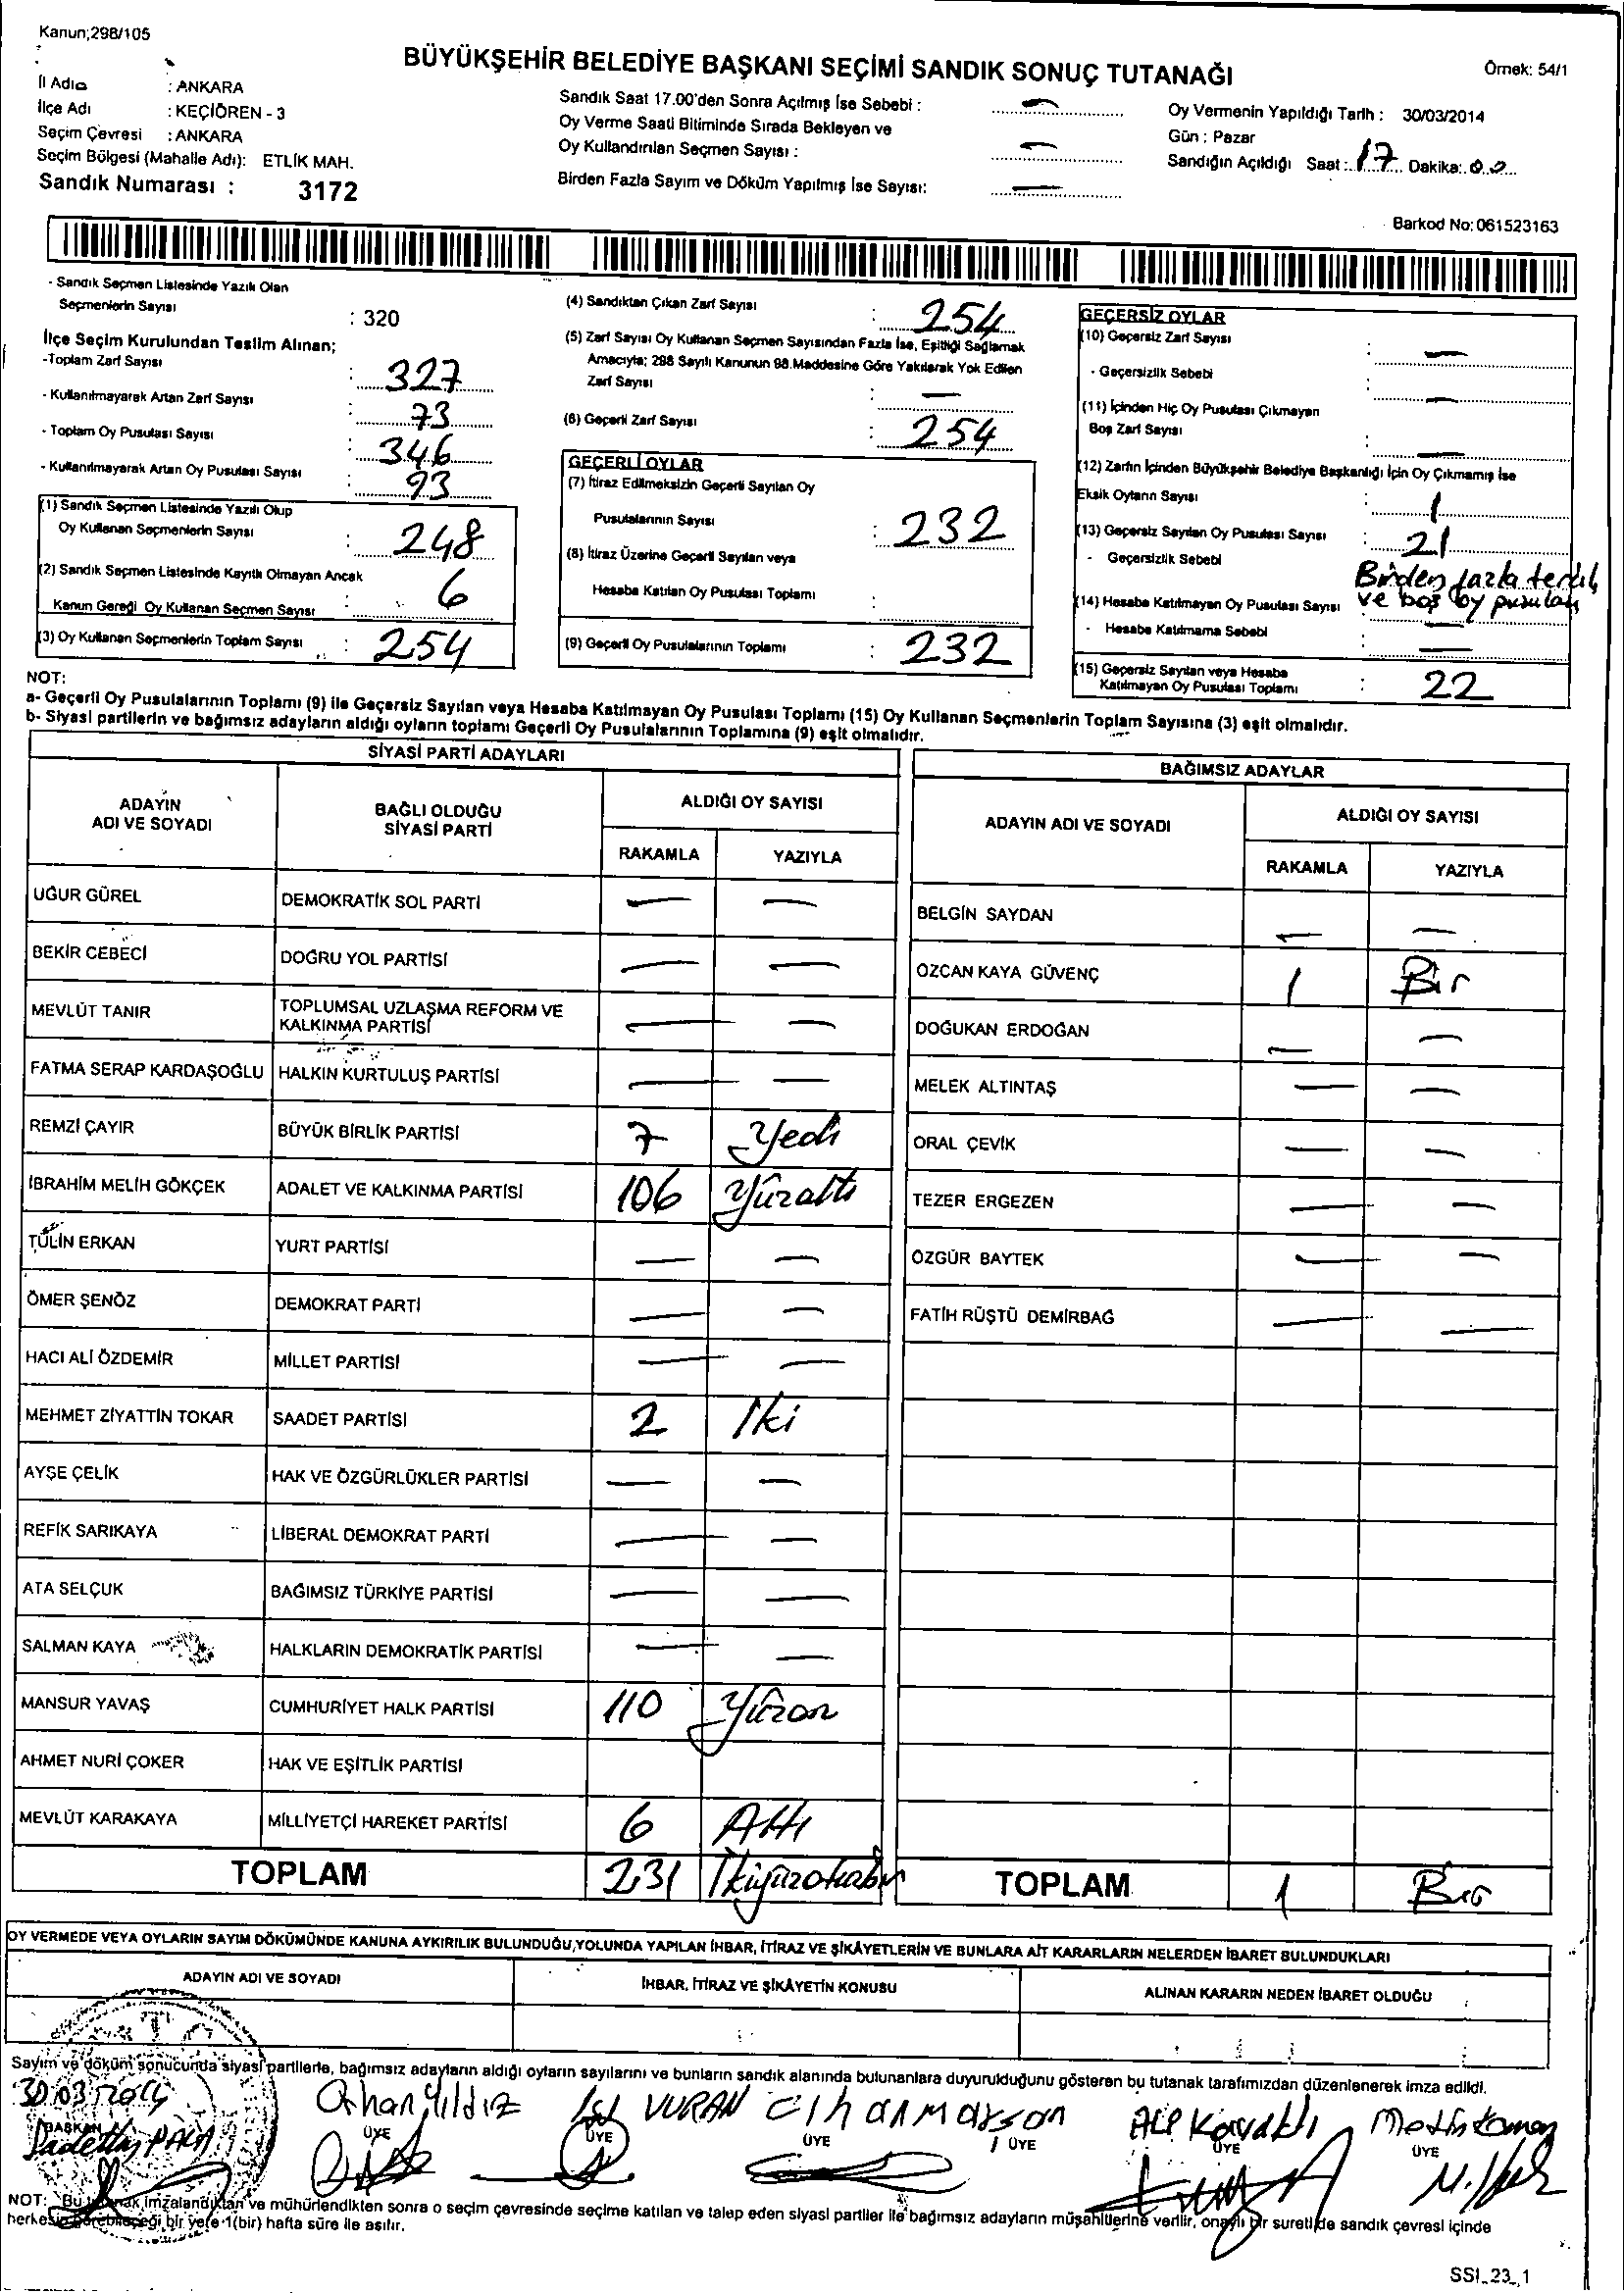 Kanun;298/105
BÜYÜKŞEHİR BELEDİYE BAŞKANI SEÇİMİ SANDIK SONUÇ TUTANAĞI
Örnek: 54/1
İl Adı : ANKARA
İlçe Adı : KEÇİÖREN - 3
Seçim Çevresi : ANKARA
Seçim Bölgesi (Mahalle Adı): ETLİK MAH.
Sandık Numarası : 3172
Sandık Saat 17.00'den Sonra Açılmış İse Sebebi : —
Oy Verme Saati Bitiminde Sırada Bekleyen ve
Oy Kullandırılan Seçmen Sayısı : —
Birden Fazla Sayım ve Döküm Yapılmış İse Sayısı: —
Oy Vermenin Yapıldığı Tarih : 30/03/2014
Gün : Pazar
Sandığın Açıldığı Saat : 17 Dakika: 00
Barkod No: 061523163
- Sandık Seçmen Listesinde Yazılı Olan
Seçmenlerin Sayısı : 320
İlçe Seçim Kurulundan Teslim Alınan;
-Toplam Zarf Sayısı : 327
- Kullanılmayarak Artan Zarf Sayısı : 73
- Toplam Oy Pusulası Sayısı : 346
- Kullanılmayarak Artan Oy Pusulası Sayısı : 93
(1) Sandık Seçmen Listesinde Yazılı Olup
Oy Kullanan Seçmenlerin Sayısı : 248
(2) Sandık Seçmen Listesinde Kayıtlı Olmayan Ancak
Kanun Gereği Oy Kullanan Seçmen Sayısı : 6
(3) Oy Kullanan Seçmenlerin Toplam Sayısı : 254
(4) Sandıktan Çıkan Zarf Sayısı : 254
(5) Zarf Sayısı Oy Kullanan Seçmen Sayısından Fazla İse, Eşitliği Sağlamak
Amacıyla; 298 Sayılı Kanunun 98.Maddesine Göre Yakılarak Yok Edilen
Zarf Sayısı : —
(6) Geçerli Zarf Sayısı : 254
GEÇERLİ OYLAR
(7) İtiraz Edilmeksizin Geçerli Sayılan Oy
Pusulalarının Sayısı : 232
(8) İtiraz Üzerine Geçerli Sayılan veya
Hesaba Katılan Oy Pusulası Toplamı :
(9) Geçerli Oy Pusulalarının Toplamı : 232
GEÇERSİZ OYLAR
(10) Geçersiz Zarf Sayısı : —
- Geçersizlik Sebebi : —
(11) İçinden Hiç Oy Pusulası Çıkmayan
Boş Zarf Sayısı : —
(12) Zarfın İçinden Büyükşehir Belediye Başkanlığı İçin Oy Çıkmamış İse
Eksik Oyların Sayısı : 1
(13) Geçersiz Sayılan Oy Pusulası Sayısı : 21
- Geçersizlik Sebebi Birden fazla tercih
ve boş oy pusulası
(14) Hesaba Katılmayan Oy Pusulası Sayısı : —
- Hesaba Katılmama Sebebi —
(15) Geçersiz Sayılan veya Hesaba
Katılmayan Oy Pusulası Toplamı : 22
NOT:
a- Geçerli Oy Pusulalarının Toplamı (9) ile Geçersiz Sayılan veya Hesaba Katılmayan Oy Pusulası Toplamı (15) Oy Kullanan Seçmenlerin Toplam Sayısına (3) eşit olmalıdır.
b- Siyasi partilerin ve bağımsız adayların aldığı oyların toplamı Geçerli Oy Pusulalarının Toplamına (9) eşit olmalıdır.
SİYASİ PARTİ ADAYLARI
ADAYIN ADI VE SOYADI
BAĞLI OLDUĞU SİYASİ PARTİ
ALDIĞI OY SAYISI
RAKAMLA YAZIYLA
UĞUR GÜREL DEMOKRATİK SOL PARTİ — —
BEKİR CEBECİ DOĞRU YOL PARTİSİ — —
MEVLÜT TANIR TOPLUMSAL UZLAŞMA REFORM VE KALKINMA PARTİSİ — —
FATMA SERAP KARDAŞOĞLU HALKIN KURTULUŞ PARTİSİ — —
REMZİ ÇAYIR BÜYÜK BİRLİK PARTİSİ 7 Yedi
İBRAHİM MELİH GÖKÇEK ADALET VE KALKINMA PARTİSİ 106 Yüzaltı
TÜLİN ERKAN YURT PARTİSİ — —
ÖMER ŞENÖZ DEMOKRAT PARTİ — —
HACI ALİ ÖZDEMİR MİLLET PARTİSİ — —
MEHMET ZİYATTİN TOKAR SAADET PARTİSİ 2 İki
AYŞE ÇELİK HAK VE ÖZGÜRLÜKLER PARTİSİ — —
REFİK SARIKAYA LİBERAL DEMOKRAT PARTİ — —
ATA SELÇUK BAĞIMSIZ TÜRKİYE PARTİSİ — —
SALMAN KAYA HALKLARIN DEMOKRATİK PARTİSİ — —
MANSUR YAVAŞ CUMHURİYET HALK PARTİSİ 110 Yüzon
AHMET NURİ ÇOKER HAK VE EŞİTLİK PARTİSİ
MEVLÜT KARAKAYA MİLLİYETÇİ HAREKET PARTİSİ 6 Altı
TOPLAM 231 İkiyüzotuzbir
BAĞIMSIZ ADAYLAR
ADAYIN ADI VE SOYADI
ALDIĞI OY SAYISI
RAKAMLA YAZIYLA
BELGİN SAYDAN — —
ÖZCAN KAYA GÜVENÇ 1 Bir
DOĞUKAN ERDOĞAN — —
MELEK ALTINTAŞ — —
ORAL ÇEVİK — —
TEZER ERGEZEN — —
ÖZGÜR BAYTEK — —
FATİH RÜŞTÜ DEMİRBAĞ — —
TOPLAM 1 Bir
OY VERMEDE VEYA OYLARIN SAYIM DÖKÜMÜNDE KANUNA AYKIRILIK BULUNDUĞU,YOLUNDA YAPILAN İHBAR, İTİRAZ VE ŞİKÂYETLERİN VE BUNLARA AİT KARARLARIN NELERDEN İBARET BULUNDUKLARI
ADAYIN ADI VE SOYADI
İHBAR, İTİRAZ VE ŞİKÂYETİN KONUSU
ALINAN KARARIN NEDEN İBARET OLDUĞU
Sayım ve döküm sonucunda siyasi partilerle, bağımsız adayların aldığı oyların sayılarını ve bunların sandık alanında bulunanlara duyurulduğunu gösteren bu tutanak tarafımızdan düzenlenerek imza edildi.
30.03.2014
BAŞKAN ÜYE ÜYE ÜYE ÜYE ÜYE ÜYE
Sadettin PALA Orhan Yıldız VURAN Cihan
NOT: Bu tutanak imzalandıktan ve mühürlendikten sonra o seçim çevresinde seçime katılan ve talep eden siyasi partiler ile bağımsız adayların müşahitlerine verilir, onaylı bir sureti de sandık çevresi içinde
herkesin görebileceği bir yere 1(bir) hafta süre ile asılır.
SSI_23_1